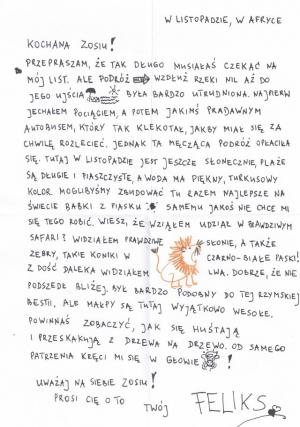 W LISTOPADZIE, W AFRYCE
KOCHANA ZOSIU!
PRZEPRASZAM, ŻE TAK DŁUGO MUSIAŁAŚ CZEKAĆ NA
MÓJ LIST. ALE PODRÓŻ WZDŁUŻ RZEKI NIL AŻ DO
JEGO UJŚCIA BYŁA BARDZO UTRUDNIONA. NAJPIERW
JECHAŁEM POCIĄGIEM, A POTEM JAKIMŚ PRADAWNYM
AUTOBUSEM, KTÓRY TAK KLEKOTAŁ, JAKBY MIAŁ SIĘ ZA
CHWILĘ ROZLECIEĆ. JEDNAK TA MĘCZĄCA PODRÓŻ OPŁACIŁA
SIĘ. TUTAJ W LISTOPADZIE JEST JESZCZE SŁONECZNIE, PLAŻE
SĄ DŁUGIE I PIASZCZYSTE, A WODA MA PIĘKNY, TURKUSOWY
KOLOR. MOGLIBYŚMY ZBUDOWAĆ TU RAZEM NAJLEPSZE NA
ŚWIECIE BABKI Z PIASKU. SAMEMU JAKOŚ NIE CHCE MI
SIĘ TEGO ROBIĆ. WIESZ, ŻE WZIĄŁEM UDZIAŁ W PRAWDZIWYM
SAFARI? WIDZIAŁEM PRAWDZIWE SŁONIE, A TAKŻE
ZEBRY, TAKIE KONIKI W CZARNO-BIAŁE PASKI!
Z DOŚĆ DALEKA WIDZIAŁEM LWA. DOBRZE, ŻE NIE
PODSZEDŁ BLIŻEJ. BYŁ BARDZO PODOBNY DO TEJ RZYMSKIEJ
BESTII. ALE MAŁPY SĄ TUTAJ WYJĄTKOWO WESOŁE.
POWINNAŚ ZOBACZYĆ, JAK SIĘ HUŚTAJĄ
I PRZESKAKUJĄ Z DRZEWA NA DRZEWO. OD SAMEGO
PATRZENIA KRĘCI MI SIĘ W GŁOWIE!
UWAŻAJ NA SIEBIE ZOSIU!
PROSI CIĘ O TO TWÓJ FELIKS